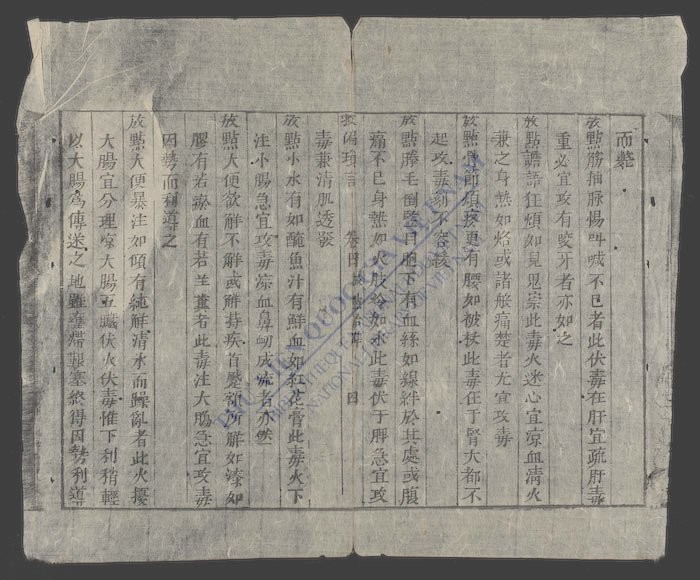 而斃
放點筋抽脉惕叫喊不已者此伏毒在肝宜疏肝毒
重必宜攻有咬牙者亦如之
放點譫語狂煩如見鬼祟此毒火迷心宜凉血清火
兼之身熱如烙或諸般痛楚者尤宜攻毒
放點 即煩 更有腰如被杖此毒在于腎大都不
起攻毒刻不容緩
放點 毛倒 目胞下有血絲如線絆於其處或腹
痛不已身熱如火肢冷如氷此毒伏于脾急宜攻
毒兼清肌透發
救偏瑣言 卷四 四
放點小水有如醃魚汁有鮮血如紅花膏此毒火下
注小腸急宜攻毒凉血鼻衂成流者亦然
放點大便欲解不解或解 疾首蹙額所解如漆如
膠有若瘀血有若 者此毒注大腸急宜攻毒
因勢而利導之
放點大便暴注如傾有純解清水而躁亂者此火擾
大腸宜分理 大腸 臟伏火伏毒惟下利稍輕
以大腸爲傳送之地雖壅滯艱塞終得因勢利導
THƯ VIỆN QUỐC GIA VIỆT NAM
BIBLIOTHEQUE
NATIONAL